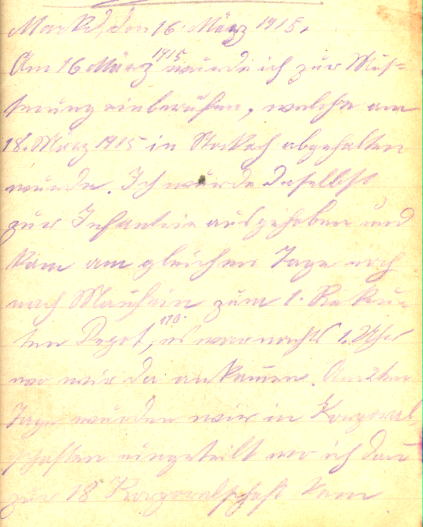 Markt, den 16. März 1915.
Am 16 März 1915 wurde ich zur Mus=
terung einberufen, welche am
18. März 1915 in Stockach abgehalten
wurde. Ich wurde daselbst
zur Infanterie ausgehoben und
kam am gleichen Tage noch
nach Manheim zum 1. Rekru=
ten Depot, 110. es war nachts 1. Uhr
wo wir da ankamen. Am 2ten
Tage wurden wir in Korporal
schaften eingeteilt wo ich dan
zur 18 Korporalschaft kam